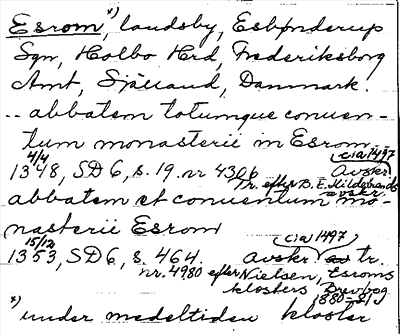 Esrom*), landsby, Esbønderup
Sgn, Holbo Hrd, Frederiksborg
Amt, Sjælland, Danmark.
.. abbatem totumque conuen-
tum monasterii in Esrom
4/4 1348, SD 6, s. 19. nr 4306 (cia 1497 avskr.
Tr. efter B. E. Hildebrands avskr.
abbatem et conuentum mo-
nasterii Esrom
15/12 1353, SD 6, s. 464. (cia 1497) avskr. tr.
nr. 4980 efter Nielsen, Esroms
klosters Brevbog
1880-81)
*) under medeltiden kloster